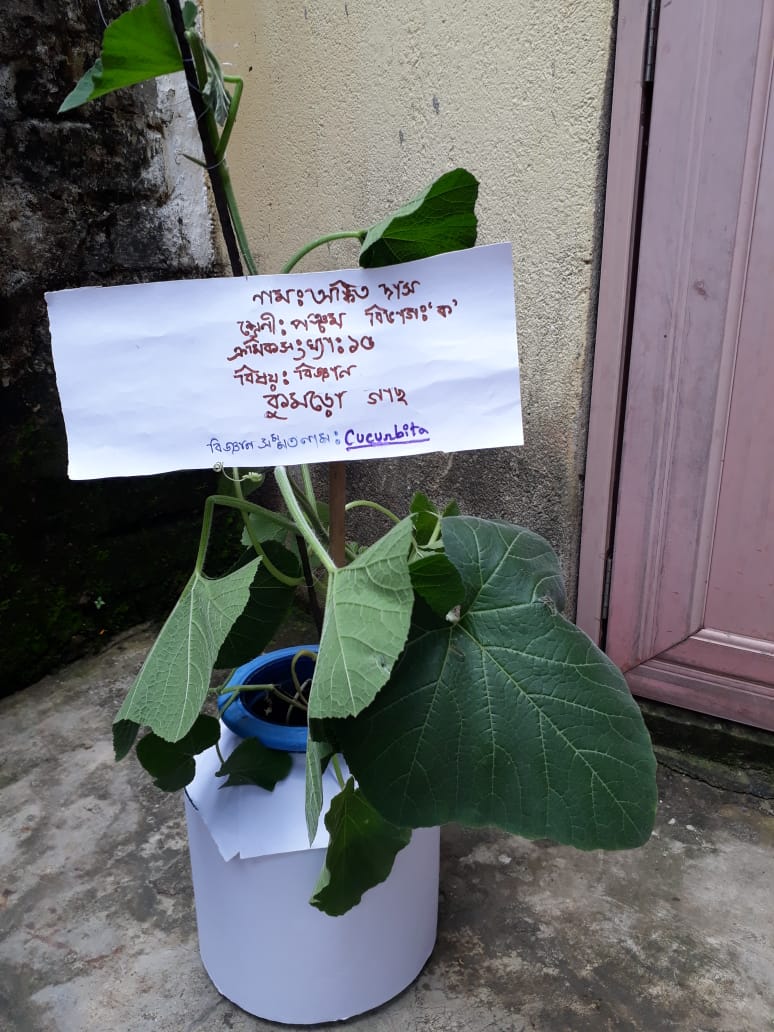 নাম: অঙ্কিত দাস
শ্রেনী: পঞ্চম বিভাগ: 'ক'
ক্রমিক সংখ্যা: ১৫
বিষয়: বিজ্ঞান
কুমড়ো গাছ
বিজ্ঞান সম্মত নাম: Cucurbita